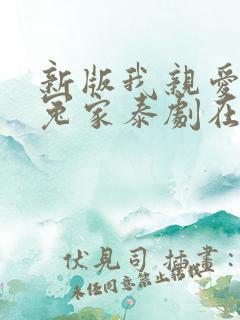 新版我親愛
冤家泰劇在
伏見司 插畫:
未任同意禁止转载